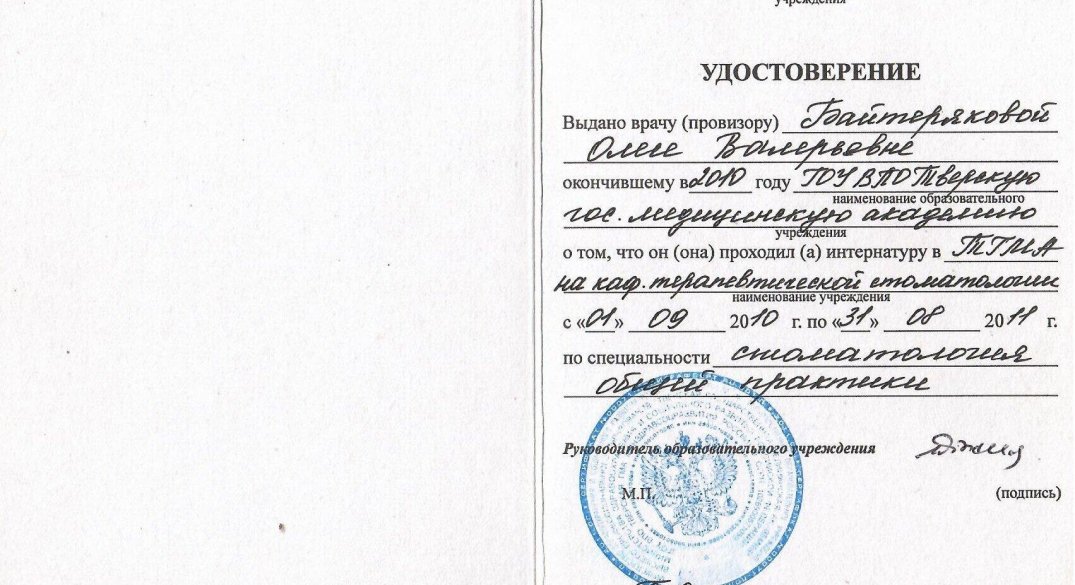 учреждения
УДОСТОВЕРЕНИЕ
Выдано врачу (провизору) Байтеряковой
Олесе Валерьевне
окончившему в 2010 году ГОУ ВПО Тверскую
наименование образовательного
гос. медицинскую академию
учреждения
о том, что он (она) проходил (а) интернатуру в ТГМА
на каф. терапевтической стоматологии
наименование учреждения
с «01» 09 2010 г. по «31» 08 2011 г.
по специальности стоматология
общей практики
Руководитель образовательного учреждения
М.П.
(подпись)